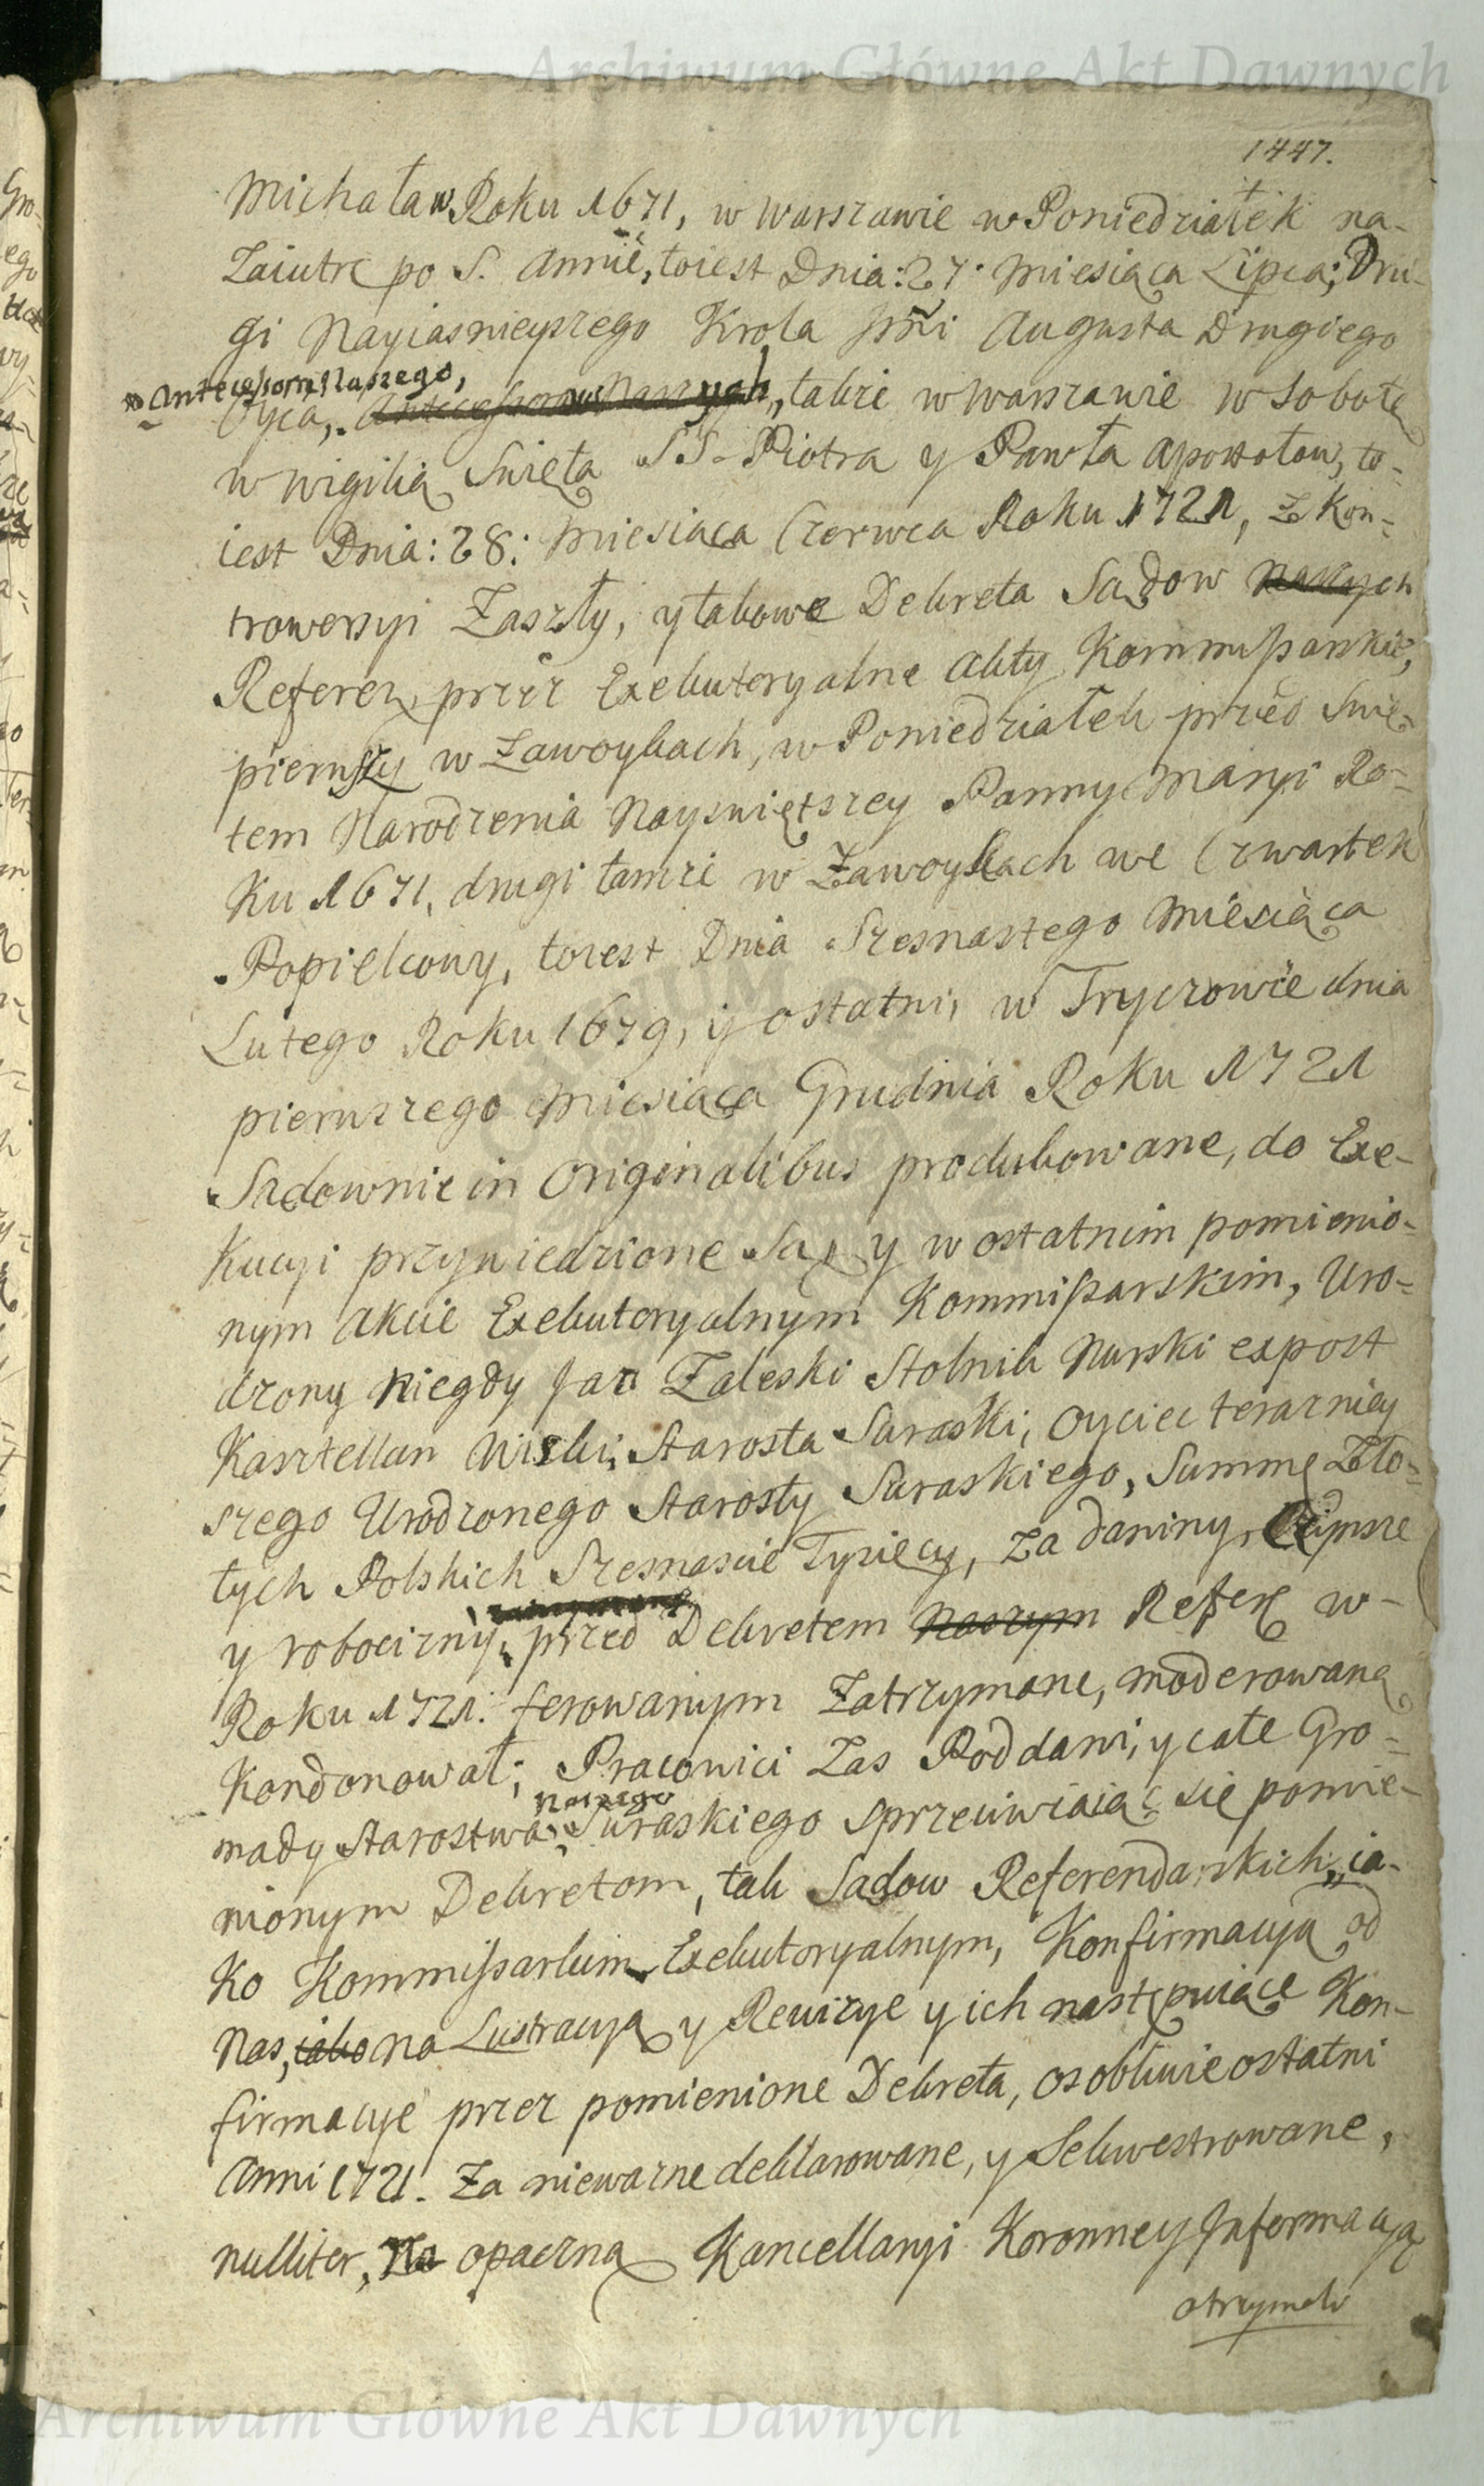 Archiwum Główne Akt Dawnych
1447.
Michała w Roku 1671, w Warszawie w Poniedziałek na-
Zaiutrz po S. Annie, toiest Dnia: 27. Miesiąca Lipca; Dru-
gi Nayiasnieyszego Krola Jmći Augusta Drugiego
Antecessora Naszego,
Oyca, Antecessorow Naszych, także w Warszawie w Sobotę
w Wigilią Swięta SS. Piotra y Pawła Apostołow, to-
iest Dnia: 28: Miesiąca Czerwca Roku 1721, z Kon-
trowersyi Zaszły, y takowe Dekreta Sądow Naszych
Referen, przez Exekutoryalne Akty Kommissarskie,
pierwszy w Zawoykach, w Poniedziałek przed Swię-
tem Narodzenia Nayswiętszey Panny Maryi Ro-
ku 1671, drugi tamże w Zawoykach we Czwartek
Popielcowy, toiest Dnia Szesnastego Miesiąca
Lutego Roku 1679, y ostatni, w Tryczowie dnia
pierwszego Miesiąca Grudnia Roku 1721
Sądownie in Originalibus produkowane, do Exe-
kucyi przywiedzione Są, y w ostatnim pomienio-
nym Akcie Exekutoryalnym Kommissarskim, Uro-
dzony niegdy Jan Zaleski Stolnik Nurski expost
Kasztellan Wiski, Starosta Suraski, Oyciec terazniey
szego Urodzonego Starosty Suraskiego, Summę Zło-
tych Polskich Szesnascie Tysięcy, za daniny, Czynsze
y robocizny, przed Dekretem Naszym Refer w-
Roku 1721. ferowanym Zatrzymane, moderowaną
Kondonował; Pracowici Zas Poddani, y całe Gro-
Naszego
mady Starostwa Suraskiego sprzeciwiaiąc się pomie-
nionym Dekretom, tak Sądow Referendarskich, ia-
ko Kommissarskim Exekutoryalnym, Konfirmacyą od
Nas, iako na Lustracyą y Rewizye y ich następuiące Kon-
firmacye przez pomienione Dekreta, osobliwie ostatni
Anni 1721. Za nieważne deklarowane, y Sekwestrowane,
nulliter, Na opaczną Kancellaryi Koronney Informacyą
otrzymali
Archiwum Główne Akt Dawnych